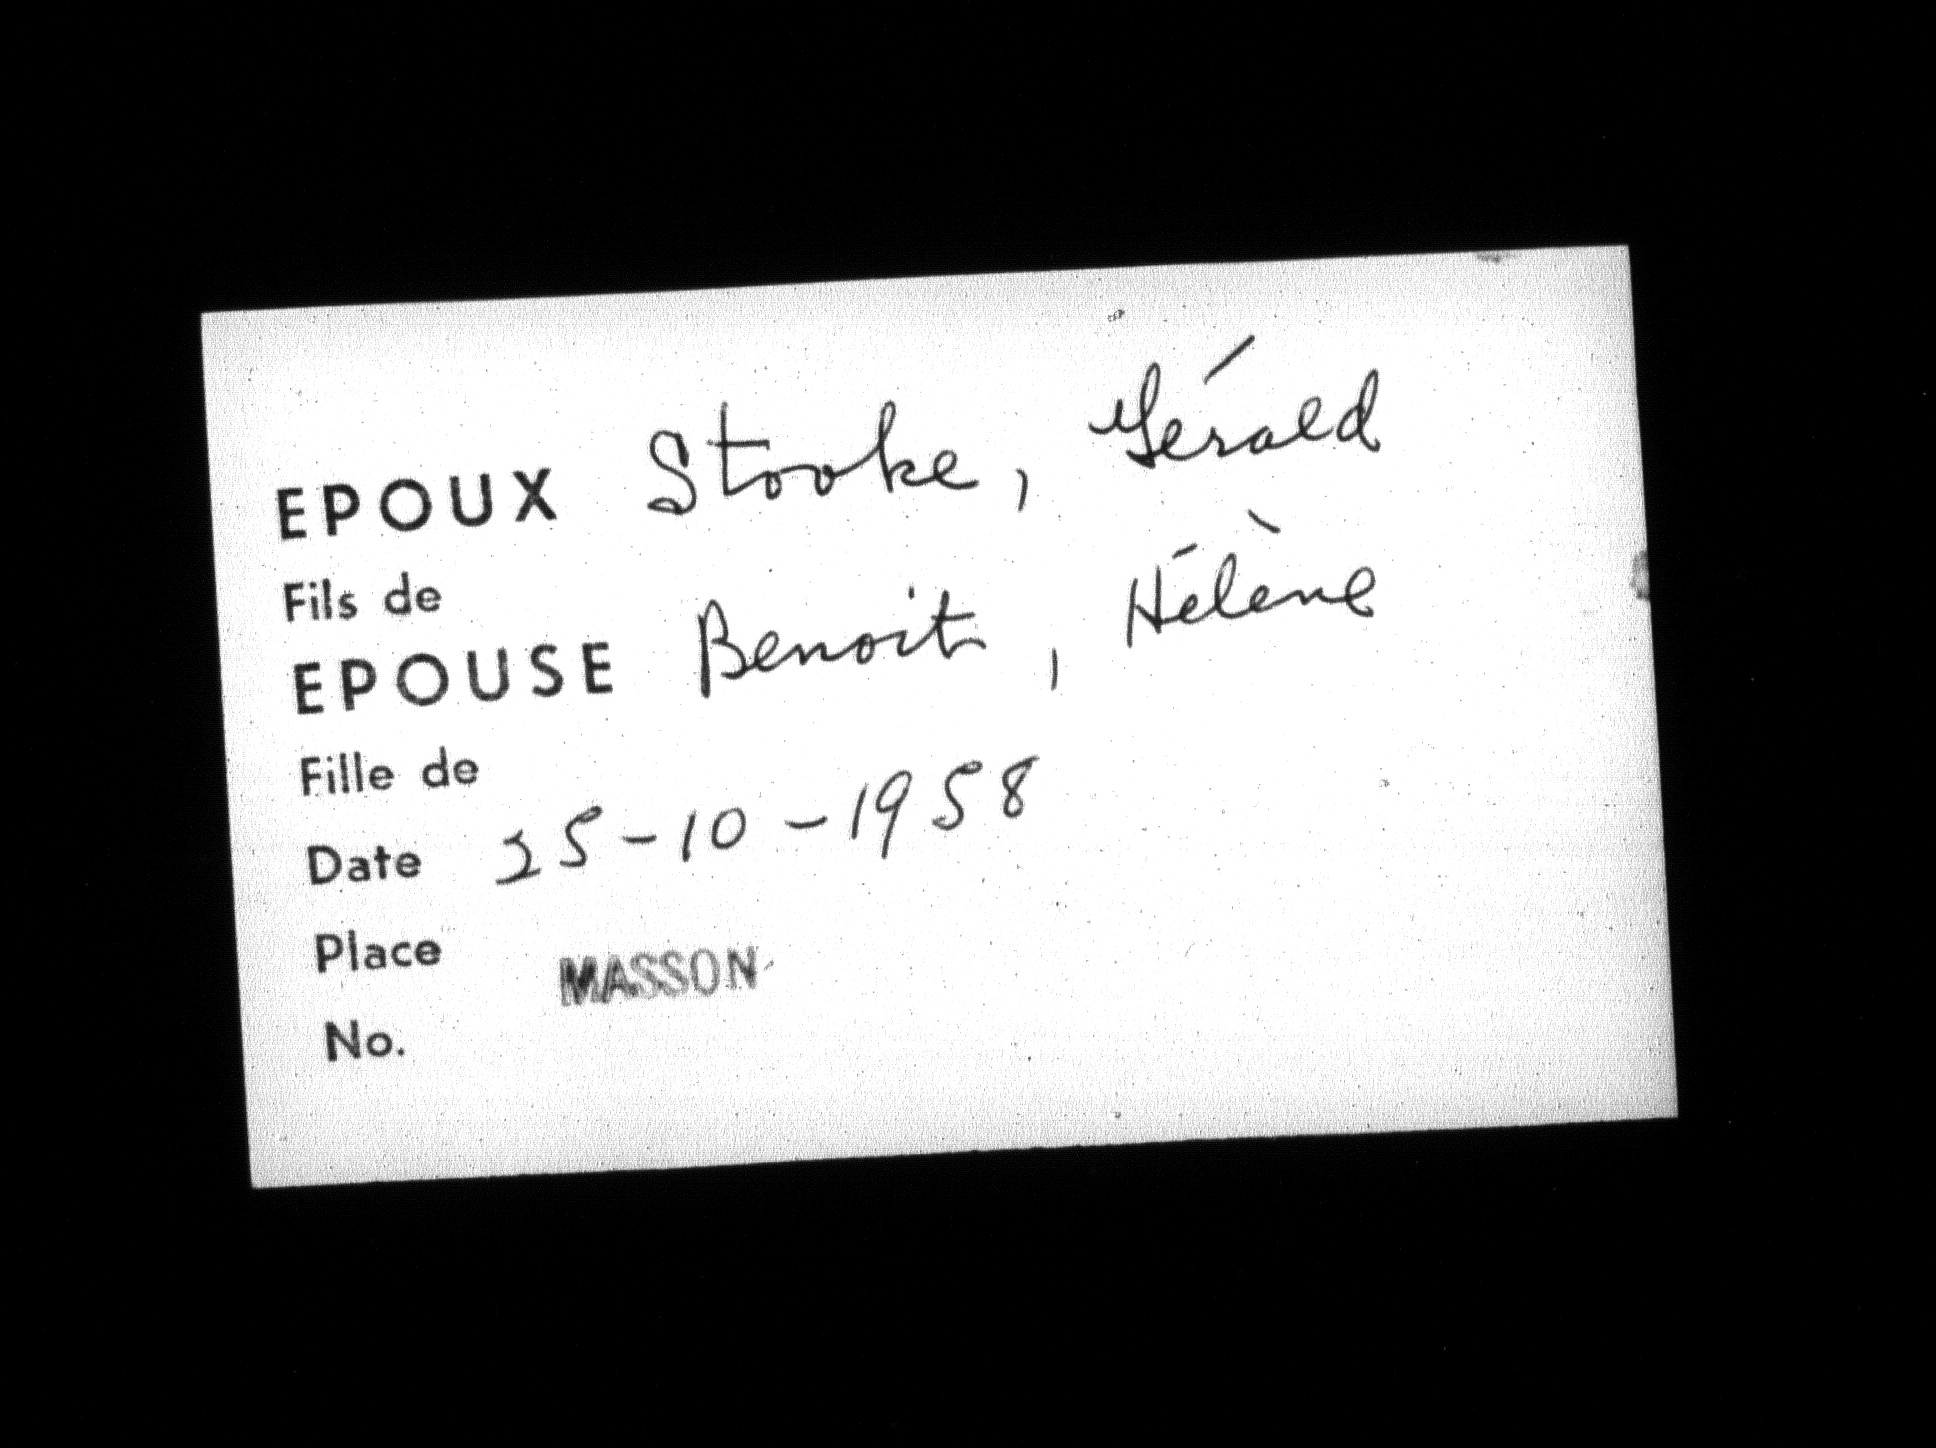 EPOUX Stooke, Gérald
Fils de
EPOUSE Benoit, Hélène
Fille de
Date 25-10-1958
Place MASSON
No.